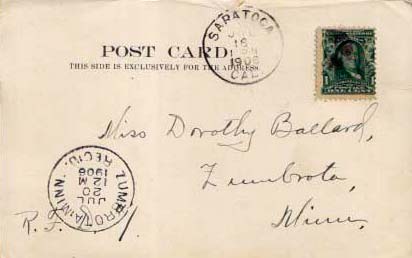 SARATOGA
16
1906
CAL.
POST CARD.
THIS SIDE IS EXCLUSIVELY FOR THE ADDRESS.
1
ONE CENT
Miss Dorothy Ballard,
Zumbrota,
Minn,
R.F. 1.
ZUMBROTA, MINN.
JUL
20
12 M
1906
REC'D.